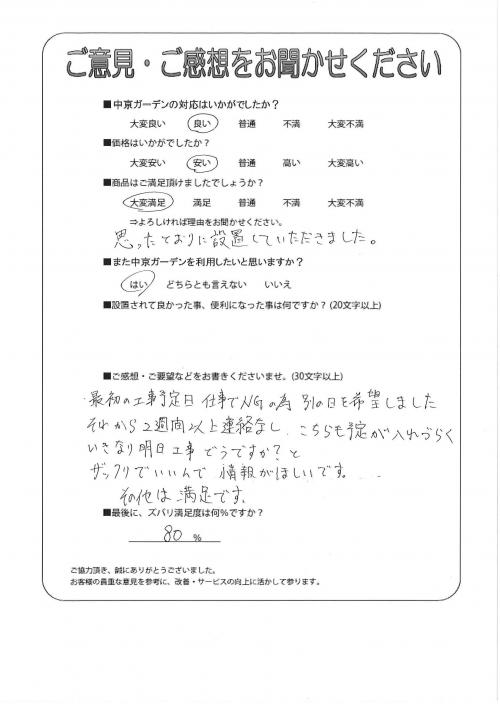 ご意見・ご感想をお聞かせください
■中京ガーデンの対応はいかがでしたか？
大変良い 良い 普通 不満 大変不満
■価格はいかがでしたか？
大変安い 安い 普通 高い 大変高い
■商品はご満足頂けましたでしょうか？
大変満足 満足 普通 不満 大変不満
⇒よろしければ理由をお聞かせください。
思ったとおりに設置していただきました。
■また中京ガーデンを利用したいと思いますか？
はい どちらとも言えない いいえ
■設置されて良かった事、便利になった事は何ですか？(20文字以上)
■ご感想・ご要望などをお書きくださいませ。(30文字以上)
・最初の工事予定日 仕事でNGの為 別の日を希望しました
それから2週間以上連絡なし、こちらも予定が入れづらく
いきなり明日工事どうですか？と
ザックリでいいんで 情報がほしいです。
その他は満足です。
■最後に、ズバリ満足度は何％ですか？
80 %
ご協力頂き、誠にありがとうございました。
お客様の貴重な意見を参考に、改善・サービスの向上に活かして参ります。